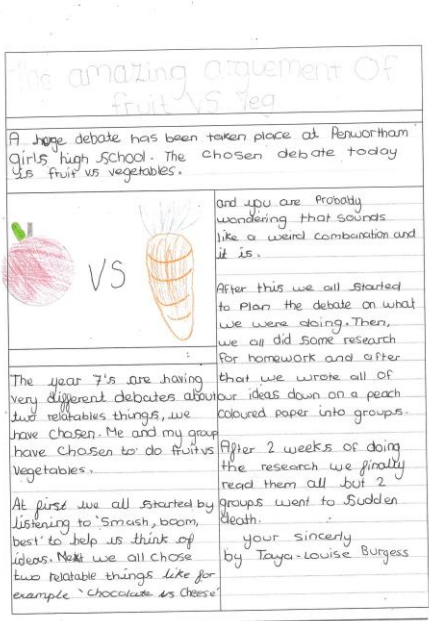 The amazing arguement Of
fruit VS Veg
A huge debate has been taken place at Penwortham
girls high school. The chosen debate today
is fruit vs vegetables.
VS
The year 7's are having
very different debates about
two relatables things, we
have chosen. Me and my group
have chosen to do fruit vs
vegetables.
At first we all started by
listening to 'Smash, boom,
best' to help us think of
ideas. Next we all chose
two relatable things like for
example 'chocolate vs cheese'
and you are probably
wondering that sounds
like a weird combanation and
it is.
After this we all started
to plan the debate on what
we were doing. Then,
we all did some research
for homework and after
that we wrote all of
our ideas down on a peach
coloured paper into groups.
After 2 weeks of doing
the research we finally
read them all but 2
groups went to sudden
death.
your sincerly
by Taya-Louise Burgess